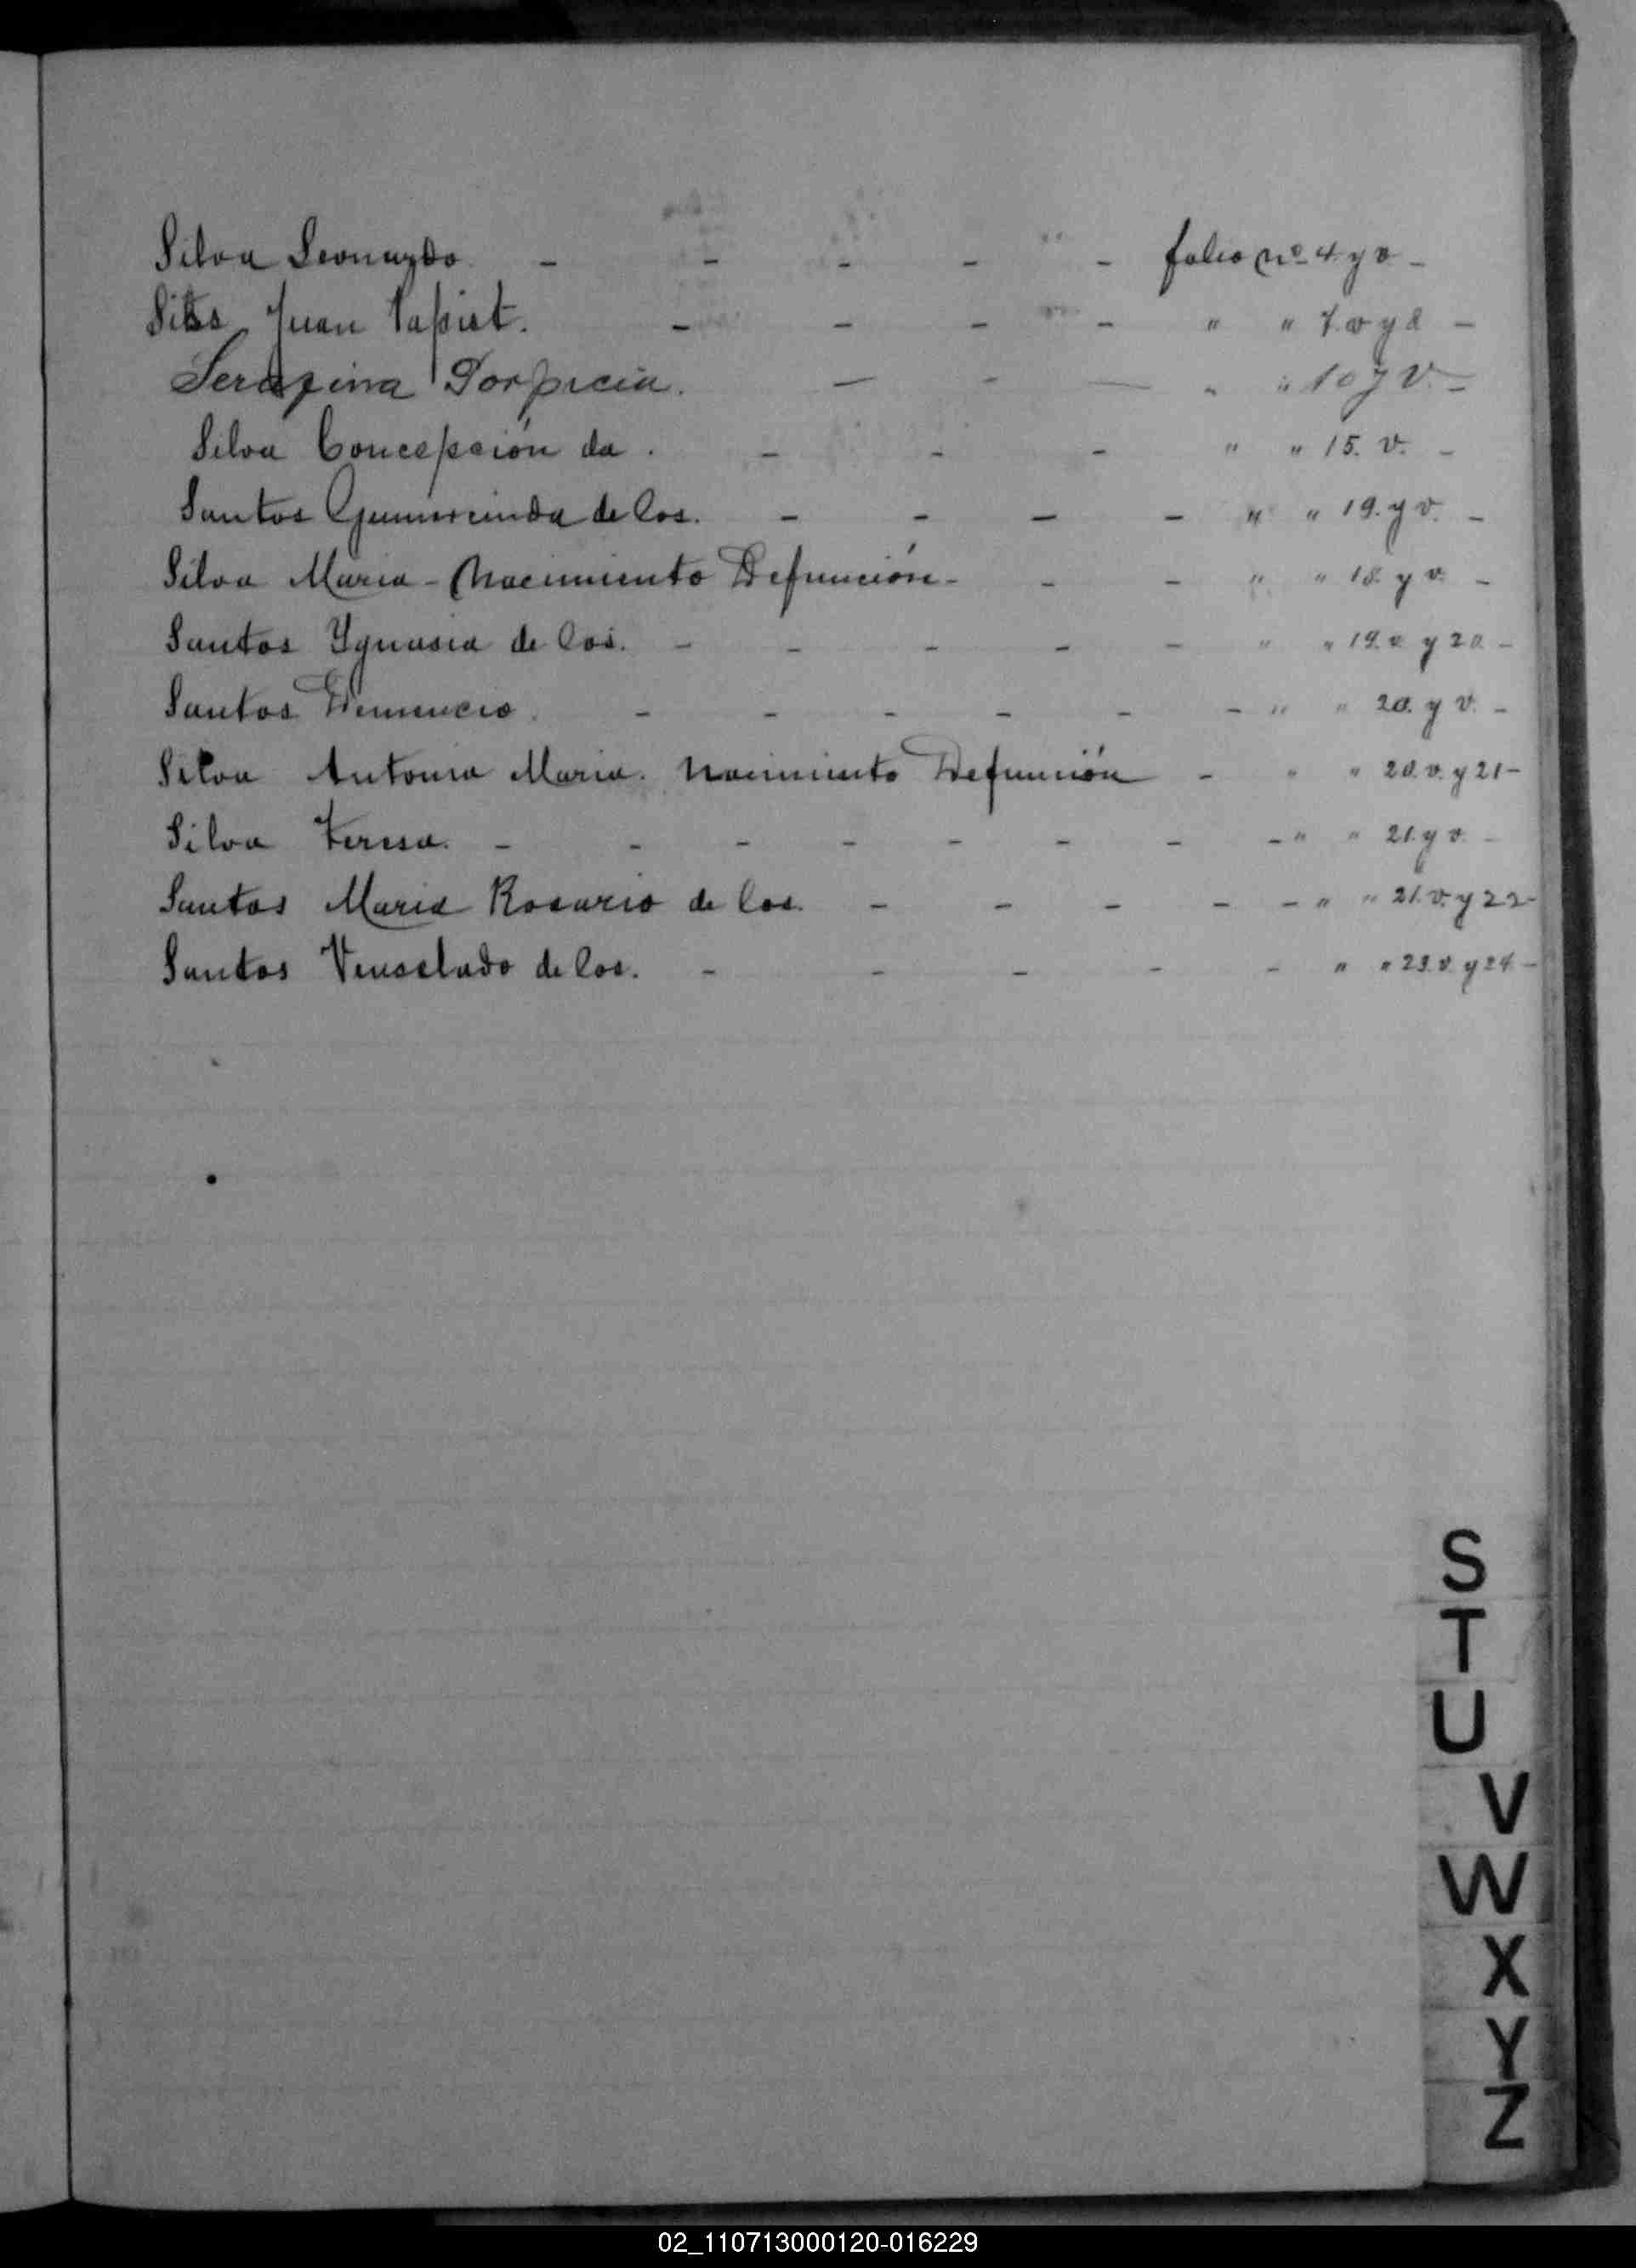 Silva Leonardo - - - - - folio nº 4 y v -
Juan Vapist. - - - - " " 7. v y 8 -
Serafina Porpicia. - - - " " 10 y v. -
Silva Concepción da. - - - " " 15. v. -
Santos Gumercinda de los. - - - - " " 19. y v. -
Silva Maria - Nacimiento Defunción - - - " " 18. y v. -
Santos Ygnasia de los. - - - - - " " 19. v. y 20 -
Santos - - - - - - " " 20. y v. -
Silva Antonia Maria. Nacimiento Defunción - " " 20. v. y 21 -
Silva Teresa. - - - - - - - - " " 21. y v. -
Santos Maria Rosario de los. - - - - - " " 21. v. y 22 -
Santos Venselado de los. - - - - - " " 23. v. y 24 -
S
T
U
V
W
X
Y
Z
02_110713000120-016229